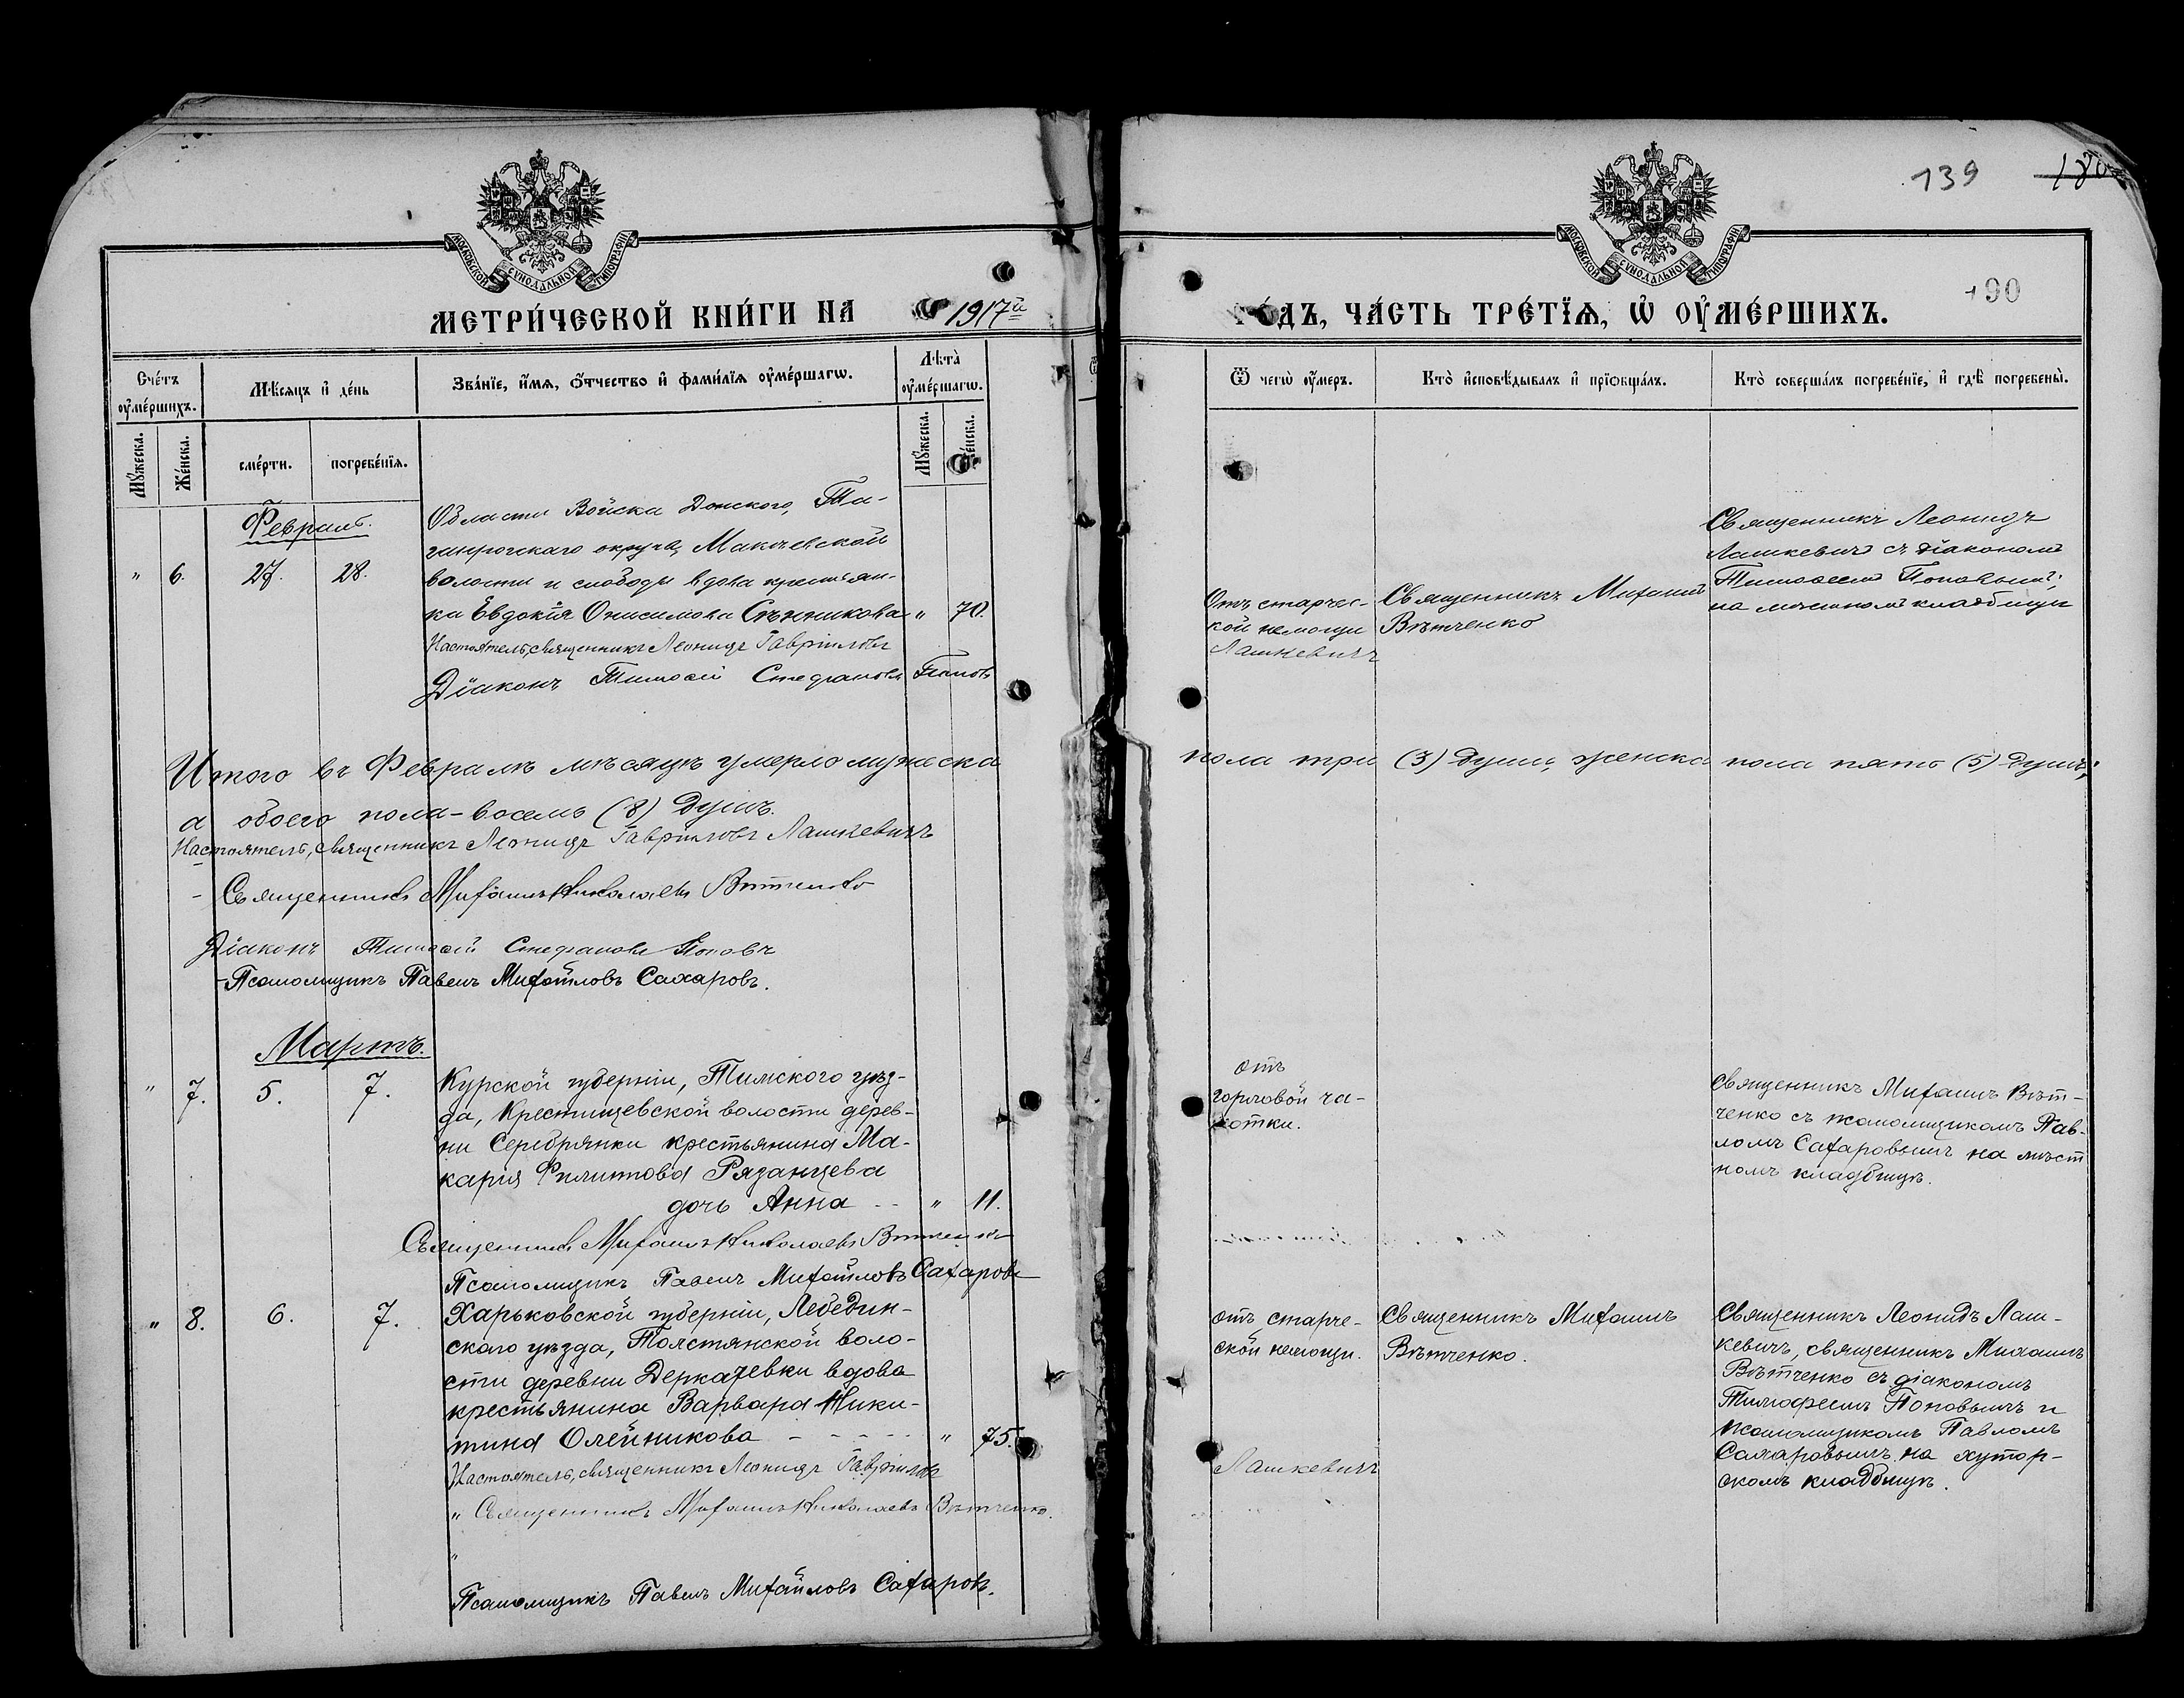 139 180
190
МОСКОВСКОЙ СѴНОДАЛЬНОЙ ТИПОГРАФІИ
МОСКОВСКОЙ СѴНОДАЛЬНОЙ ТИПОГРАФІИ
МЕТРИ́ЧЕСКОЙ КНИ́ГИ НА 1917й
ГО́ДЪ, ЧА́СТЬ ТРЕ́ТІѦ, Ѡ҆ ОУ҆МЕ́РШИХЪ.
Сче́тъ оу҆ме́ршихъ.
Мѣ́сяцъ и҆ де́нь
Зва́нїе, и҆́мѧ, ѻ҆́тчество и҆ фами́лїѧ оу҆ме́ршагѡ.
Лѣта̀ оу҆ме́ршагѡ.
Ѿ чегѡ̀ оу҆́меръ.
Кто̀ и҆сповѣ́дывалъ и҆ прїѻбща́лъ.
Кто̀ соверша́лъ погребе́нїе, и҆ гдѣ̀ погребены̀.
Мꙋ́жеска.
Же́нска.
сме́рти.
погребе́нїѧ.
Мꙋ́жеска.
Же́нска.
Февраль.
" 6. 27. 28.
Области Войска Донского, Та-
ганрогскаго округа, Макеевской
волости и слободы вдова крестьян-
ка Евдокія Онисимова Сѣнникова " 70.
Настоятель, священникъ Леонидъ Гавріиловъ
Діаконъ Тимоѳей Стефановъ Поповъ
Отъ старчес-
кой немощи
Лашкевичъ
Священникъ Михаилъ
Вѣтченко
Священникъ Леонидъ
Лашкевичъ съ діакономъ
Тимоѳеемъ Поповымъ;
на мѣстномъ кладбищѣ
Итого въ Февралѣ мѣсяцѣ умерло мужеска
пола три (3) души, женска пола пять (5) душъ;
а обоего пола - восемь (8) душъ.
Настоятель, священникъ Леонидъ Гавріиловъ Лашкевичъ
- Священникъ Михаилъ Николаевъ Вѣтченко
Діаконъ Тимоѳей Стефановъ Поповъ
- Псаломщикъ Павелъ Михайловъ Сахаровъ.
Мартъ.
" 7. 5. 7.
Курской губерніи, Тимского уѣз-
да, Крестищевской волости дерев-
ни Серебрянки крестьянина Ма-
карія Филиппова Рязанцева
дочь Анна - - " 11.
Священникъ Михаилъ Николаевъ Вѣтченко
Псаломщикъ Павелъ Михайловъ Сахаровъ
отъ
горловой ча-
хотки.
Священникъ Михаилъ Вѣт-
ченко съ псаломщикомъ Пав-
ломъ Сахаровымъ на мѣст
номъ кладбищѣ.
" 8. 6. 7.
Харьковской губерніи, Лебедин-
скаго уѣзда, Толстянской воло-
сти деревни Деркачевки вдова
крестьянина Варвара Ники-
тина Олейникова - - - - - " 75.
Настоятель, священникъ Леонидъ Гавріиловъ
" Священникъ Михаилъ Николаевъ Вѣтченко.
"
Псаломщикъ Павелъ Михайловъ Сахаровъ.
отъ старче-
ской немощи.
Лашкевичъ
Священникъ Михаилъ
Вѣтченко.
Священникъ Леонидъ Лаш-
кевичъ, священникъ Михаилъ
Вѣтченко съ діакономъ
Тимофеемъ Поповымъ и
псаломщикомъ Павломъ
Сахаровымъ на хутор-
скомъ кладбищѣ.